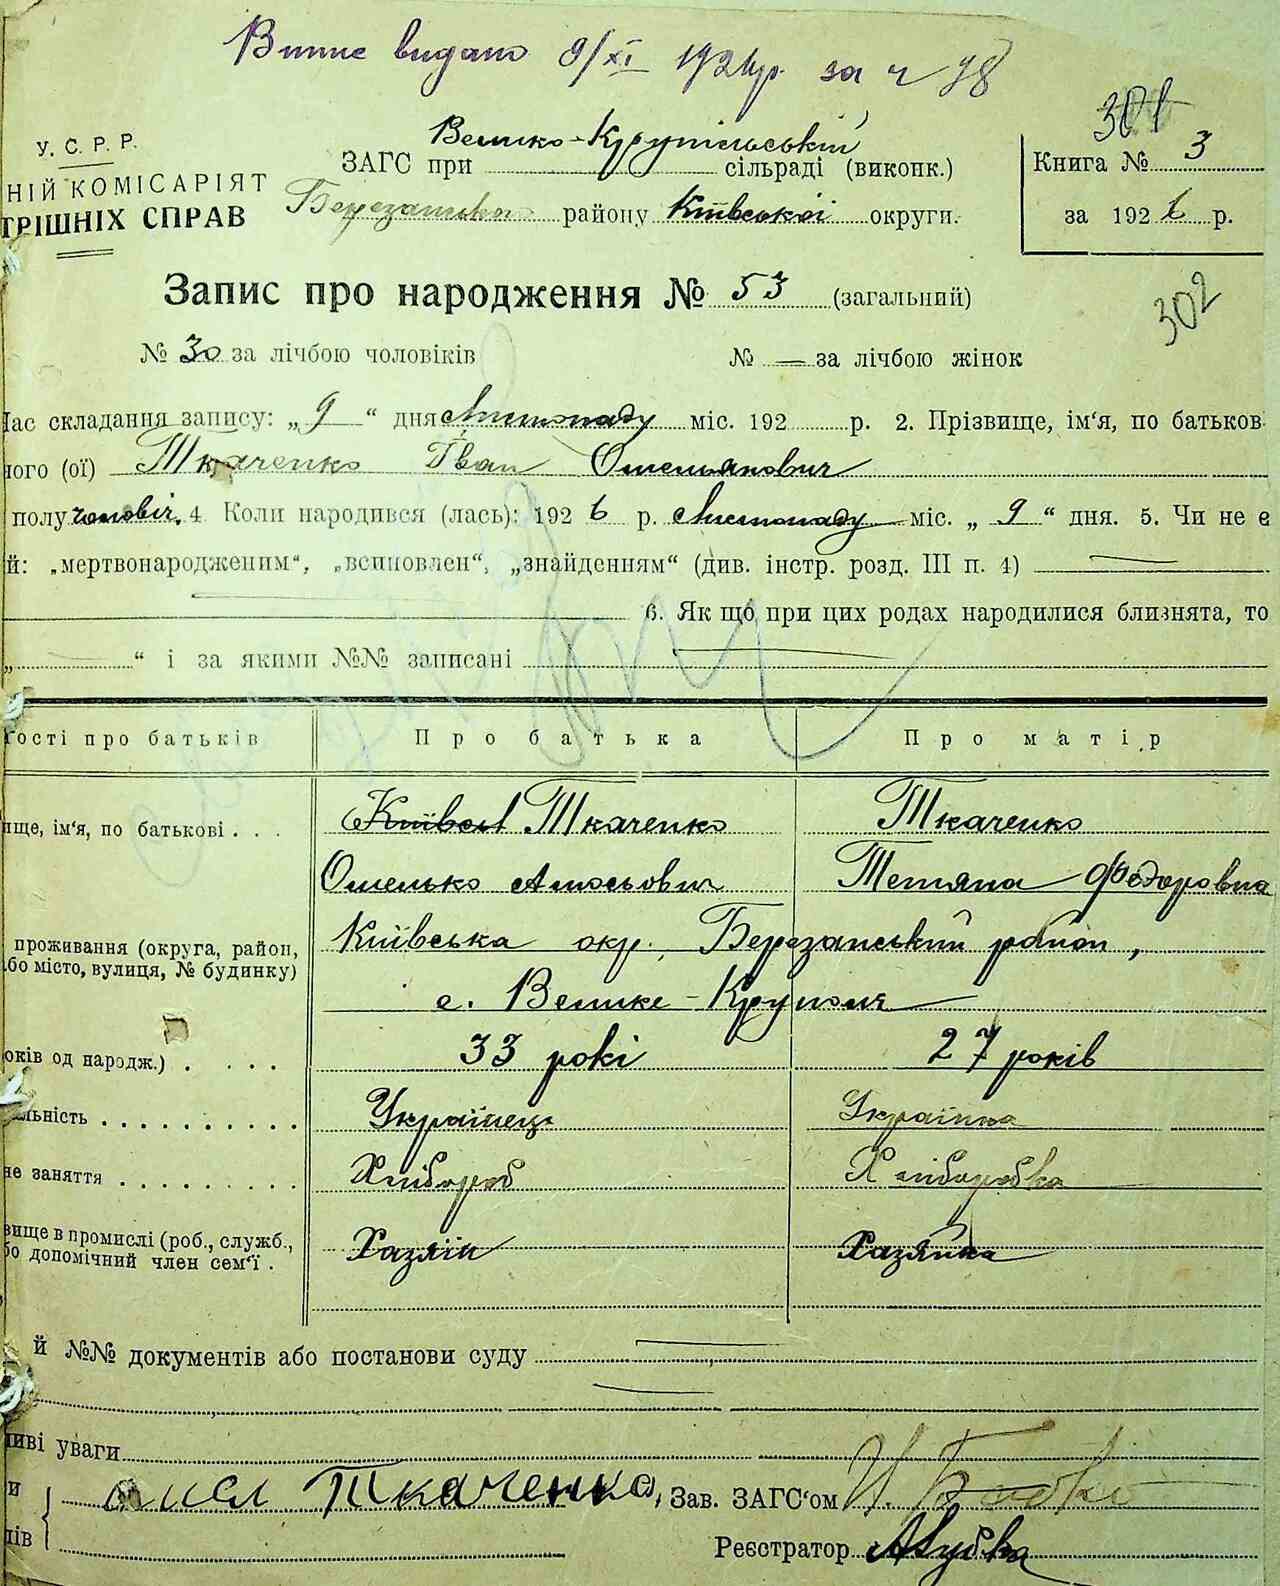 Випис видано 9/XI 192 р. за ч 98
301
У. С. Р. Р.
Велико-Крупільській
ЗАГС при сільраді (виконк.)
Книга № 3
НІЙ КОМІСАРІЯТ
ТРІШНІХ СПРАВ
Березанського району Київської округи.
за 1926 р.
Запис про народження № 53 (загальний)
302
№ 30 за лічбою чоловіків № — за лічбою жінок
Час складання запису: „ 9 “ дня Листопаду міс. 192 р. 2. Прізвище, ім‘я, по батьков
ного (ої) Ткаченко Іван Омелянович
полу чоловіч. 4 Коли народився (лась): 1926 р. Листопаду міс. „ 9 “ дня. 5. Чи не є
й: „мертвонародженим“, „всиновлен“, „знайденням“ (див. інстр. розд. III п. 4) —
6. Як що при цих родах народилися близнята, то
„ — “ і за якими №№ записані —
гості про батьків Про батька Про матір
ище, ім‘я, по батькові . . . Київськ Ткаченко Ткаченко
Омелько Амосьович Тетяна Федоровна
проживання (округа, район, Київська окр. Березанський район,
або місто, вулиця, № будинку)
с. Велике-Круполя
оків од народж.) . . . . 33 рокі 27 років
альність . . . . . . . . . . Українець Українка
не заняття . . . . . . . . . Хлібороб Хліборобка
вище в промислі (роб., служб., Хазяїн Хазяйка
бо допомічний член сем‘ї .
й №№ документів або постанови суду —
ливі уваги
и Ткаченко, Зав. ЗАГС‘ом
ків Реєстратор